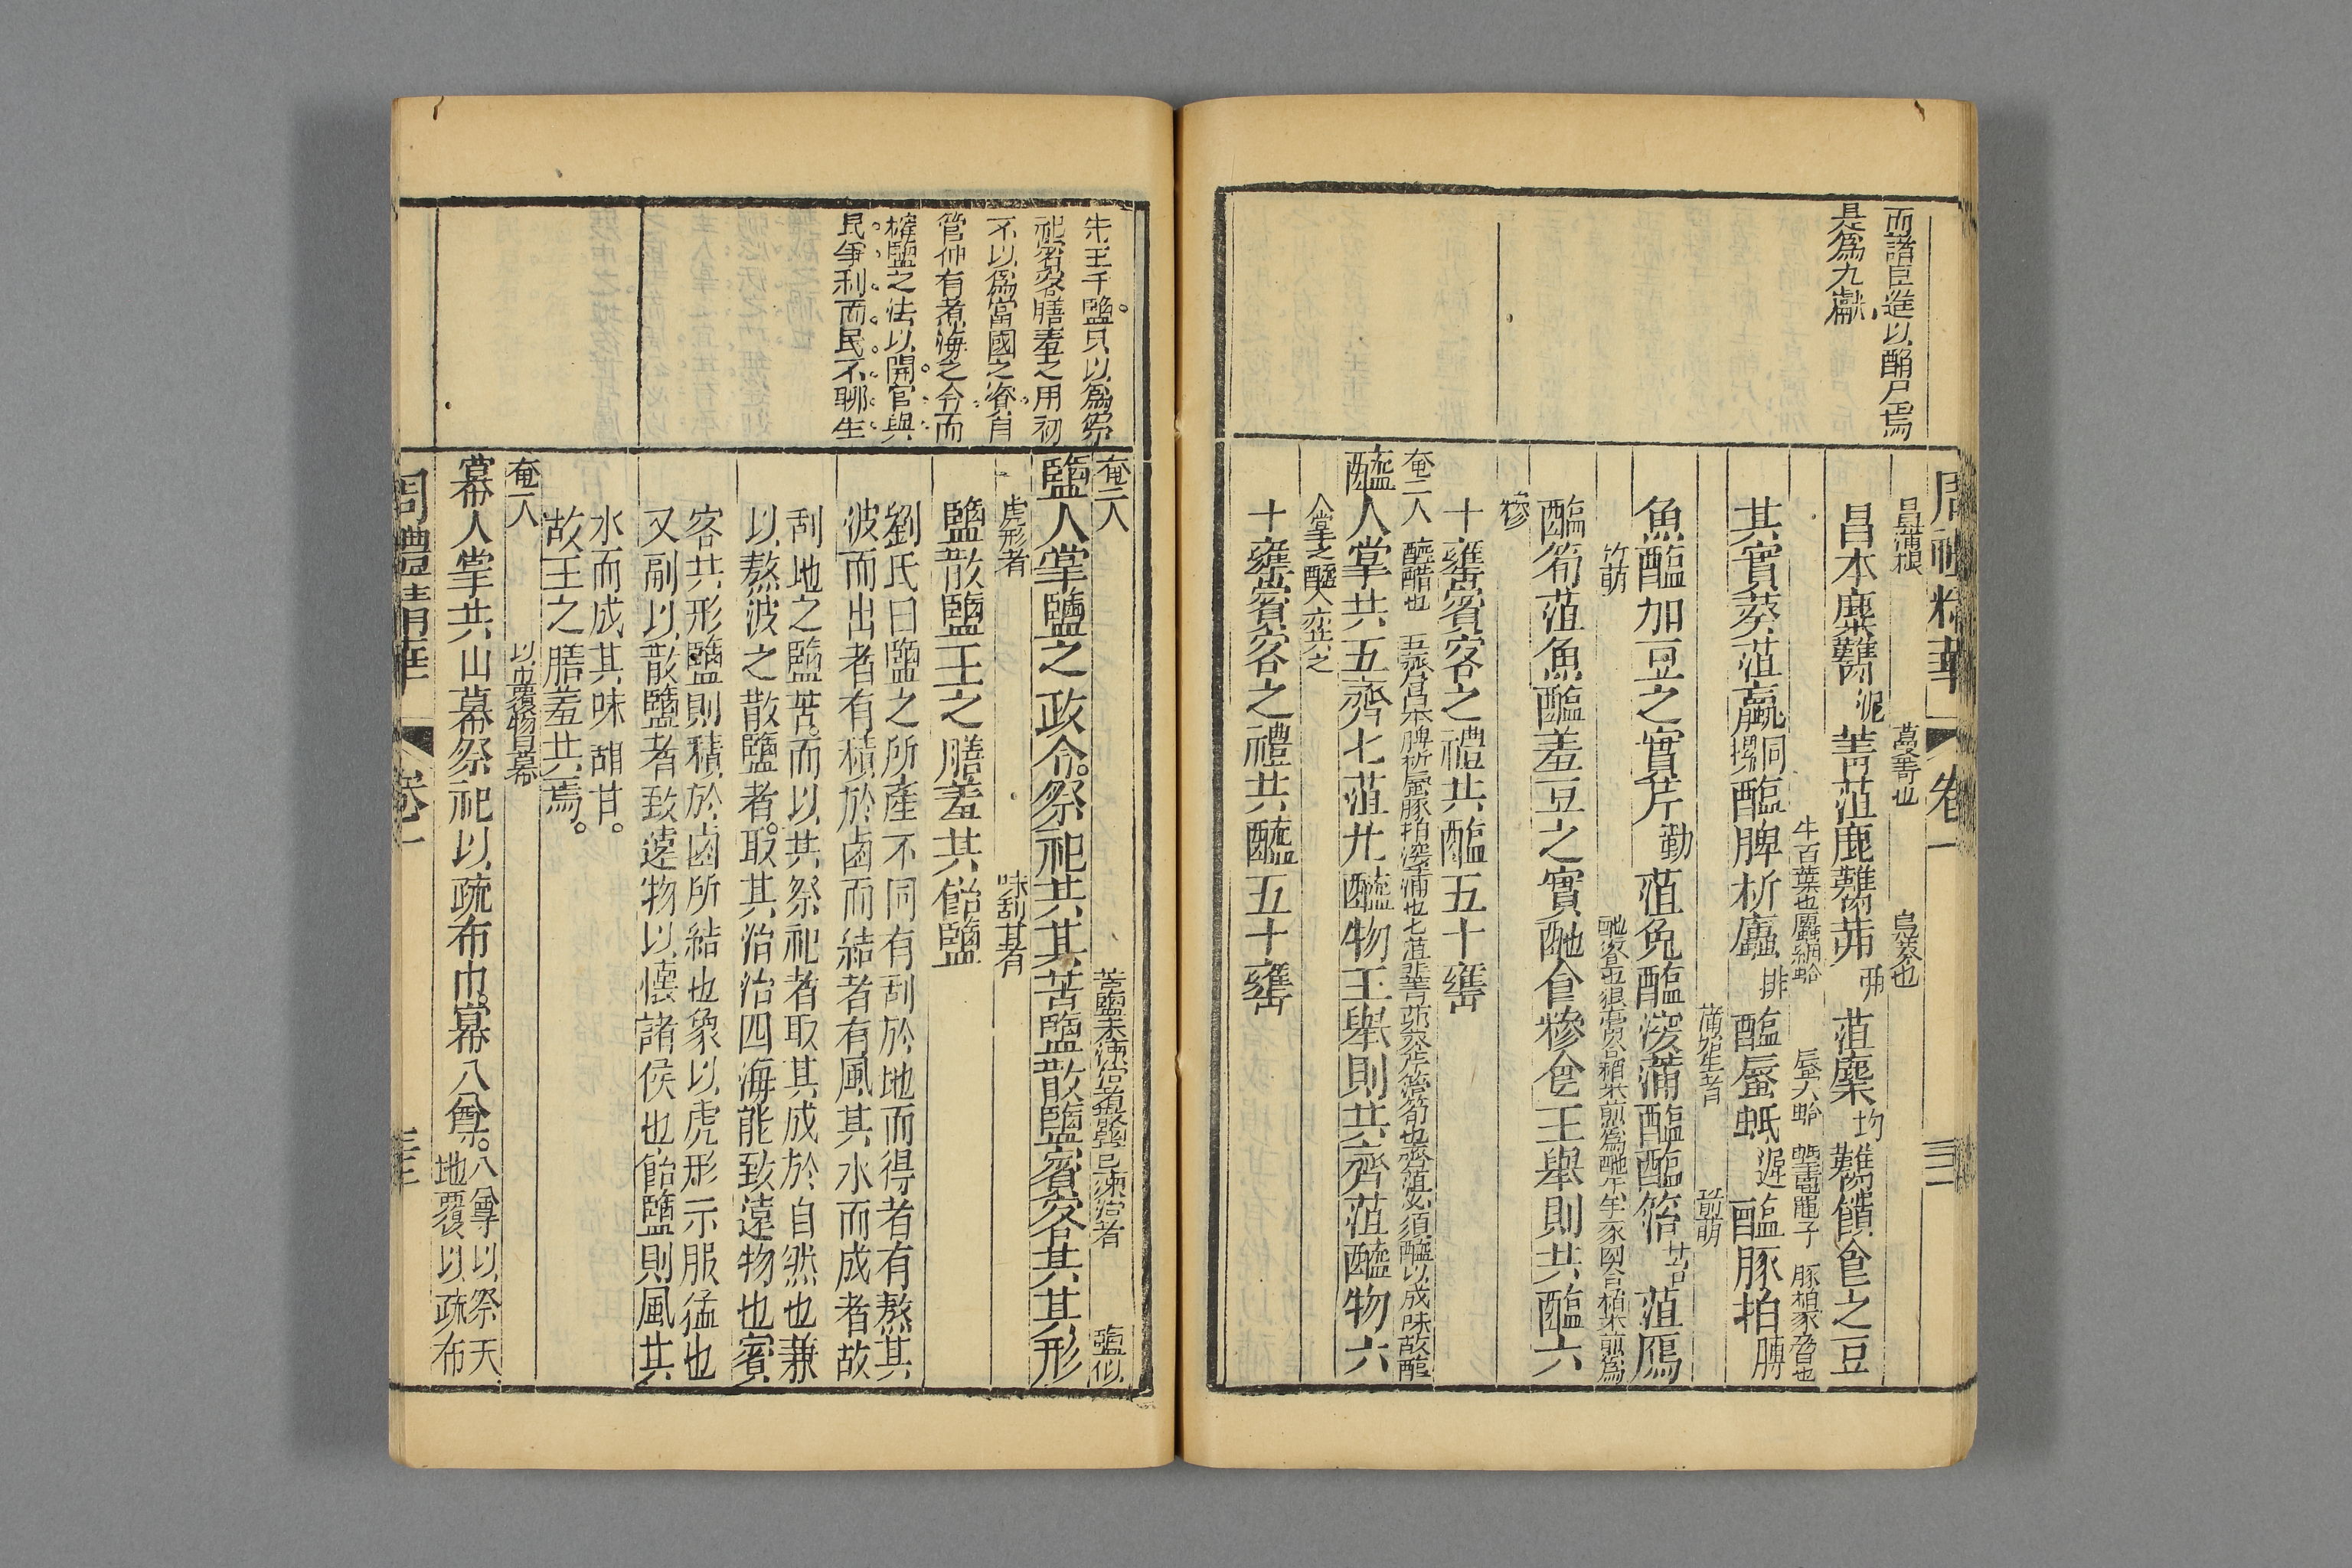 而諸臣進以酳尸焉
是爲九獻
周禮精華
卷一
昌蒲根
蔓菁也
鳧葵也
昌本麋臡泥菁菹鹿臡茆菹麇均臡饋食之豆
牛百葉也
蜃大蛤
豚拍豕脅也
其實葵菹蠃醢脾析蠯排醢蜃蚳遲醢豚拍膊
蒲始生者
箭萌
魚醢加豆之實芹勤菹兔醢深蒲醓醢箈菹鴈
竹萌
醢筍菹魚醢羞豆之實酏食糝食王舉則共醢六
糝
十罋賓客之禮共醢五十罋
奄二人
醯醋也
醯人掌共五齊七菹凡醯物王舉則共齊菹醯物六
人掌之醯人亦共之
十罋賓客之禮共醯五十罋
先王千鹽只以爲祭
祀賓客膳羞之用初
不以爲當國之資自
管仲有煮海之令而
榷鹽之法以開官與
民爭利而民不聊生
奄二人
鹽似
鹽人掌鹽之政令祭祀共其苦鹽散鹽賓客共其形
虎形者
鹽散鹽王之膳羞共飴鹽
劉氏曰鹽之所產不同有刮於地而得者有熬其
波而出者有積於鹵而結者有風其水而成者故
刮地之鹽苦而以共祭祀者取其成於自然也兼
以熬波之散鹽者取其治治四海能致遠物也賓
客共形鹽則積於鹵所結也象以虎形示服猛也
又副以散鹽者致遠物以懷諸侯也飴鹽則風其
水而成其味甜甘
故王之膳羞共焉
奄一人
以巾覆物曰幕
冪人掌共巾冪祭祀以疏布巾冪八尊八尊以祭天
地覆以疏布
周禮精華
卷一